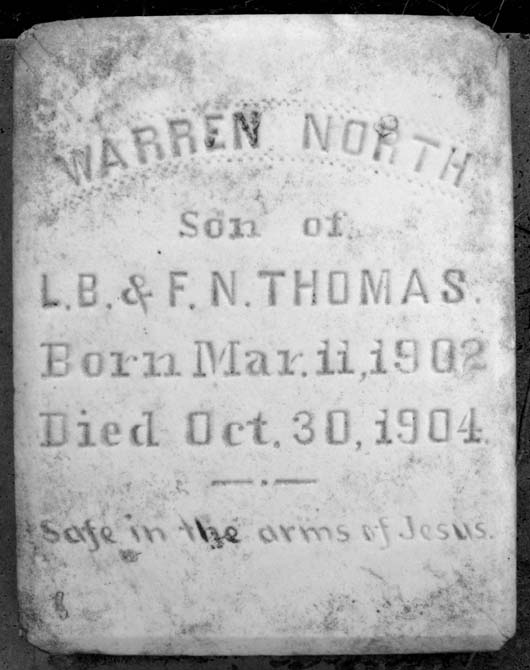 WARREN NORTH
Son of
L.B. & F.N. THOMAS.
Born Mar. 11, 1902
Died Oct. 30, 1904.
Safe in the arms of Jesus.